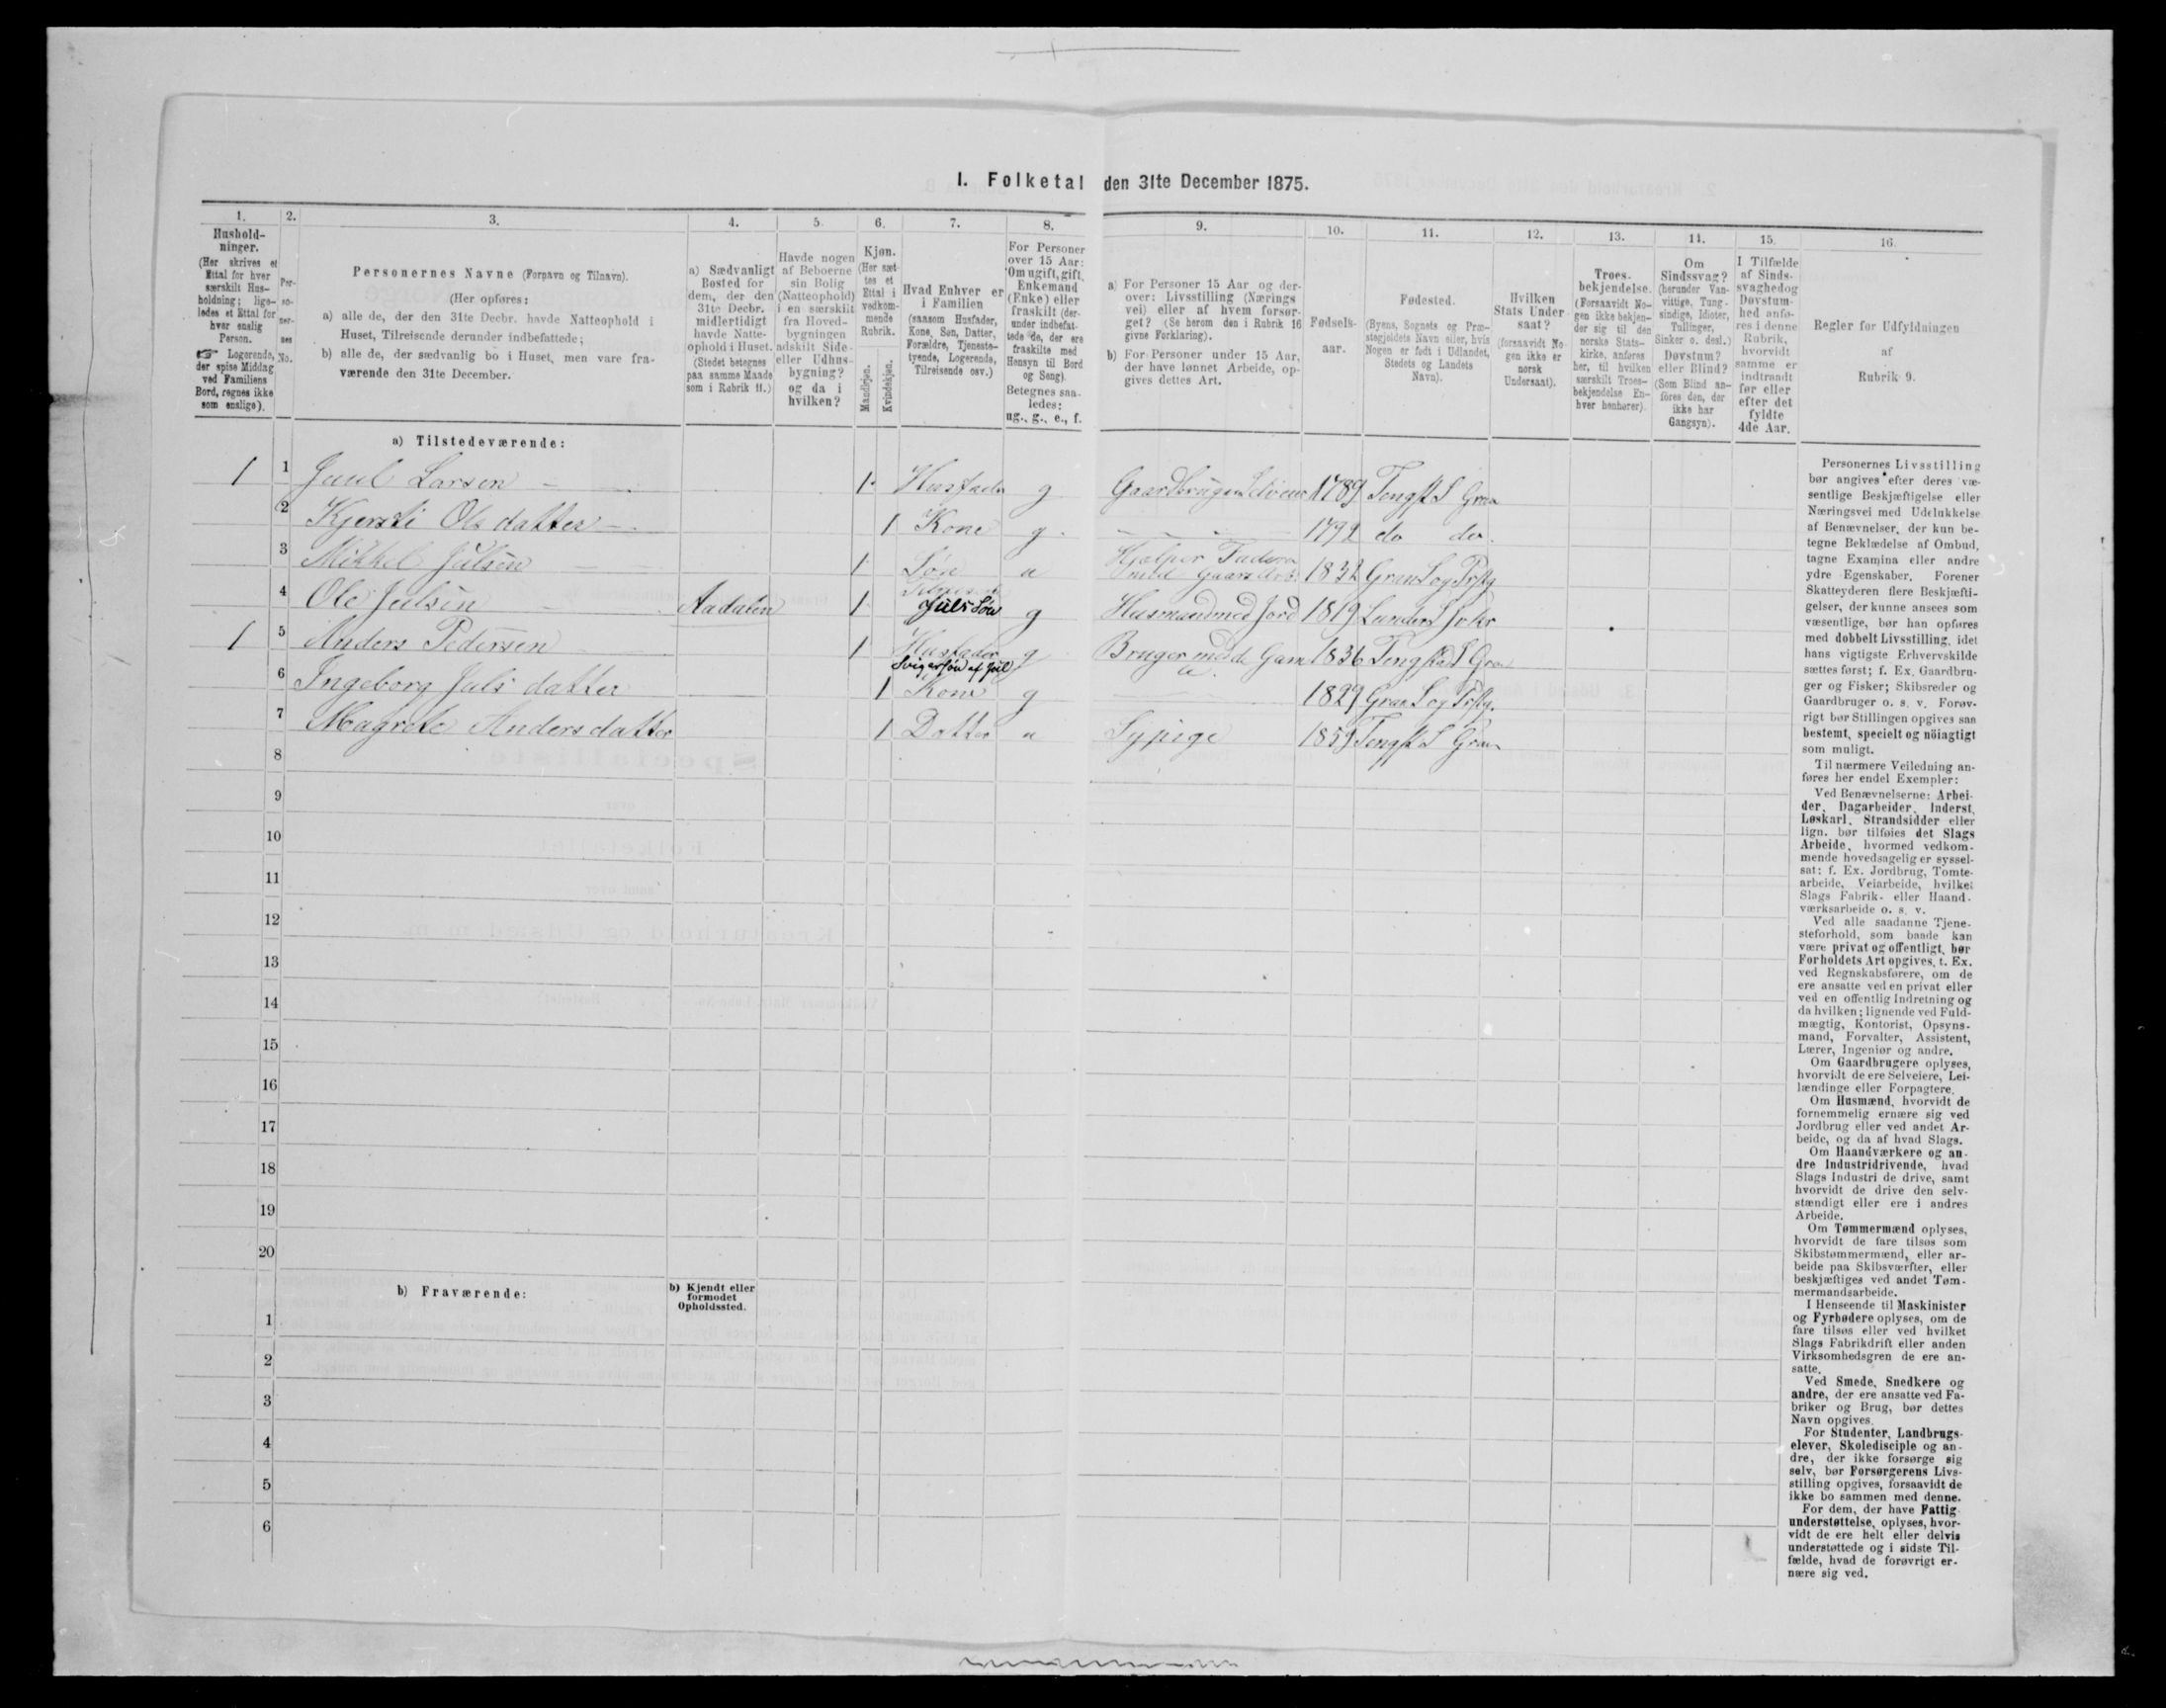 I. Folketal den 31te December 1875.
1.
2.
3.
4.
5.
6.
7.
8.
9.
10.
11.
12.
13.
14.
15.
16.
Hushold-
ninger.
(Her skrives et
Ettal for hver
særskilt Hus-
holdning; lige-
ledes et Ettal for
hver enslig
Person.
☞ Logerende,
der spise Middag
ved Familiens
Bord, regnes ikke
som enslige).
Per-
so-
ner-
nes
No.
Personernes Navne (Fornavn og Tilnavn).
(Her opføres:
a) alle de, der den 31te Decbr. havde Natteophold i
Huset, Tilreisende derunder indbefattede;
b) alle de, der sædvanlig bo i Huset, men vare fra-
værende den 31te December.
a) Sædvanligt
Bosted for
dem, der den
31te Decbr.
midlertidigt
havde Natte-
ophold i Huset.
(Stedet betegnes
paa samme Maade
som i Rubrik 11.)
Havde nogen
af Beboerne
sin Bolig
(Natteophold)
i en særskilt
fra Hoved-
bygningen
adskilt Side-
eller Udhus-
bygning?
og da i
hvilken?
Kjøn.
(Her sæt-
tes et
Ettal i
vedkom-
mende
Rubrik.
Mandkjøn.
Kvindekjøn.
Hvad Enhver er
i Familien
(saasom Husfader,
Kone, Søn, Datter,
Forældre, Tjeneste-
tyende, Logerende,
Tilreisende osv.)
For Personer
over 15 Aar:
Om ugift, gift,
Enkemand
(Enke) eller
fraskilt (der-
under indbefat-
tede de, der ere
fraskilte med
Hensyn til Bord
og Seng).
Betegnes saa-
ledes:
ug., g., e., f.
a) For Personer 15 Aar og der-
over: Livsstilling (Nærings
vei) eller af hvem forsør-
get? (Se herom den i Rubrik 16
givne Forklaring).
b) For Personer under 15 Aar,
der have lønnet Arbeide, op-
gives dettes Art.
Fødsels-
aar.
Fødested.
(Byens, Sognets og Præ-
stegjeldets Navn eller, hvis
Nogen er født i Udlandet,
Stedets og Landets
Navn).
Hvilken
Stats Under
saat?
(forsaavidt No-
gen ikke er
norsk
Undersaat).
Troes-
bekjendelse.
(Forsaavidt No-
gen ikke bekjen-
der sig til den
norske Stats-
kirke, anføres
her, til hvilken
særskilt Troes-
bekjendelse En-
hver henhører).
Om
Sindssvag?
(herunder Van-
vittige, Tung-
sindige, Idioter,
Tullinger,
Sinker o. desl.)
Døvstum?
eller Blind?
(Som Blind an-
føres den, der
ikke har
Gangsyn).
I Tilfælde
af Sinds-
svaghed og
Døvstum-
hed anfø-
res i denne
Rubrik,
hvorvidt
samme er
indtraadt
før eller
efter det
fyldte
4de Aar.
Regler for Udfyldningen
af
Rubrik 9.
a) Tilstedeværende:
1 1 Juul Larsen 1 Husfader g Gaardbruger Selveier 1789 Tengst S Gran
2 Kjersti Ols datter 1 Kone g 1792 do do
3 Mikkel Julsen 1 Søn u Hjelper Faderen med Gaardsarb 1832 Gran S og Prstg
4 Ole Julsen Aadalen 1 Juls Søn g Husmand med Jord 1819 Lunder S
1 5 Anders Pedersen 1 Husfader g Bruger 1836 S Gran
Svigersøn af Jul
6 Ingeborg Juls datter 1 Kone g 1829 Gran S og Prstg.
7 Magrete Anders datter 1 Datter u Sypige 1859 Tengst S Gran
8
9
10
11
12
13
14
15
16
17
18
19
20
b) Fraværende:
b) Kjendt eller
formodet
Opholdssted.
1
2
3
4
5
6
Personernes Livsstilling
bør angives efter deres væ-
sentlige Beskjæftigelse eller
Næringsvei med Udelukkelse
af Benævnelser, der kun be-
tegne Beklædelse af Ombud,
tagne Examina eller andre
ydre Egenskaber. Forener
Skatteyderen flere Beskjæfti-
gelser, der kunne ansees som
væsentlige, bør han opføres
med dobbelt Livsstilling, idet
hans vigtigste Erhvervskilde
sættes først; f. Ex. Gaardbru-
ger og Fisker; Skibsreder og
Gaardbruger o. s. v. Forøv-
rigt bør Stillingen opgives saa
bestemt, specielt og nøiagtigt
som muligt.
Til nærmere Veiledning an-
føres her endel Exempler:
Ved Benævnelserne: Arbei-
der, Dagarbeider, Inderst,
Løskarl, Strandsidder eller
lign. bør tilføies det Slags
Arbeide, hvormed vedkom-
mende hovedsagelig er syssel-
sat; f. Ex. Jordbrug, Tomte-
arbeide, Veiarbeide, hvilket
Slags Fabrik- eller Haand-
værksarbeide o. s. v.
Ved alle saadanne Tjene-
steforhold, som baade kan
være privat og offentligt, bør
Forholdets Art opgives, t. Ex.
ved Regnskabsførere, om de
ere ansatte ved en privat eller
ved en offentlig Indretning og
da hvilken; lignende ved Fuld-
mægtig, Kontorist, Opsyns-
mand, Forvalter, Assistent,
Lærer, Ingeniør og andre.
Om Gaardbrugere oplyses,
hvorvidt de ere Selveiere, Lei-
lændinge eller Forpagtere.
Om Husmænd, hvorvidt de
fornemmelig ernære sig ved
Jordbrug eller ved andet Ar-
beide, og da af hvad Slags.
Om Haandværkere og an-
dre Industridrivende, hvad
Slags Industri de drive, samt
hvorvidt de drive den selv-
stændigt eller ere i andres
Arbeide.
Om Tømmermænd oplyses,
hvorvidt de fare tilsøs som
Skibstømmermænd, eller ar-
beide paa Skibsværfter, eller
beskjæftiges ved andet Tøm-
mermandsarbeide.
I Henseende til Maskinister
og Fyrbødere oplyses, om de
fare tilsøs eller ved hvilket
Slags Fabrikdrift eller anden
Virksomhedsgren de ere an-
satte.
Ved Smede, Snedkere og
andre, der ere ansatte ved Fa-
briker og Brug, bør dettes
Navn opgives.
For Studenter, Landbrugs-
elever, Skoledisciple og an-
dre, der ikke forsørge sig
selv, bør Forsørgerens Livs-
stilling opgives, forsaavidt de
ikke bo sammen med denne.
For dem, der have Fattig
understøttelse, oplyses, hvor-
vidt de ere helt eller delvis
understøttede og i sidste Til-
fælde, hvad de forøvrigt er-
nære sig ved.